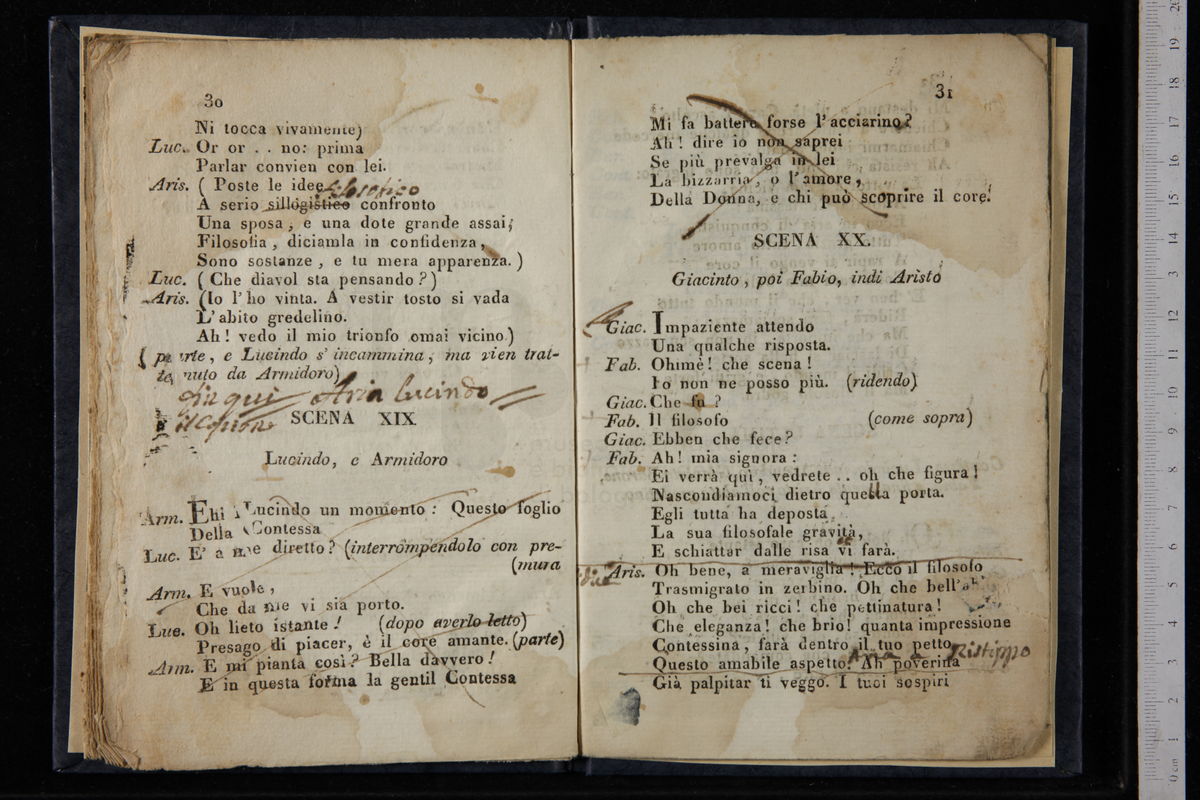 30
Ni tocca vivamente)
Luc. Or or . . no: prima
Parlar convien con lei.
Aris. ( Poste le idee
filosofico
A serio sillogistico confronto
Una sposa, e una dote grande assai;
Filosofia, diciamla in confidenza,
Sono sostanze, e tu mera apparenza.)
Luc. ( Che diavol sta pensando?)
Aris. (Io l'ho vinta. A vestir tosto si vada
L'abito gredelino.
Ah! vedo il mio trionfo omai vicino.)
( parte, e Lucindo s'incammina, ma vien trat-
tenuto da Armidoro)
fin qui Aria Lucindo
il Copione
SCENA XIX.
Lucindo, e Armidoro
Arm. Ehi! Lucindo un momento: Questo foglio
Della Contessa
Luc. E' a me diretto? (interrompendolo con pre-
(mura
Arm. E vuole,
Che da me vi sia porto.
Luc. Oh lieto istante! (dopo averlo letto)
Presago di piacer, è il core amante. (parte)
Arm. E mi pianta così? Bella davvero!
E in questa forma la gentil Contessa
31
Mi fa battere forse l'acciarino?
Ah! dire io non saprei
Se più prevalga in lei
La bizzarria, o l'amore,
Della Donna, e chi può scoprire il core.
SCENA XX.
Giacinto, poi Fabio, indi Aristo
Giac. Impaziente attendo
Una qualche risposta.
Fab. Ohimè! che scena!
Io non ne posso più. (ridendo)
Giac. Che fu?
Fab. Il filosofo (come sopra)
Giac. Ebben che fece?
Fab. Ah! mia signora:
Ei verrà quì, vedrete . . oh che figura!
Nascondiamoci dietro quella porta.
Egli tutta ha deposta
La sua filosofale gravità,
E schiattar dalle risa vi farà.
Aris. Oh bene, a meraviglia! Ecco il filosofo
Trasmigrato in zerbino. Oh che bell'
Oh che bei ricci! che pettinatura!
Che eleganza! che brio! quanta impressione
Contessina, farà dentro il tuo petto
Aria Ristippo
Questo amabile aspetto! Ah poverina
Già palpitar ti veggo. I tuoi sospiri